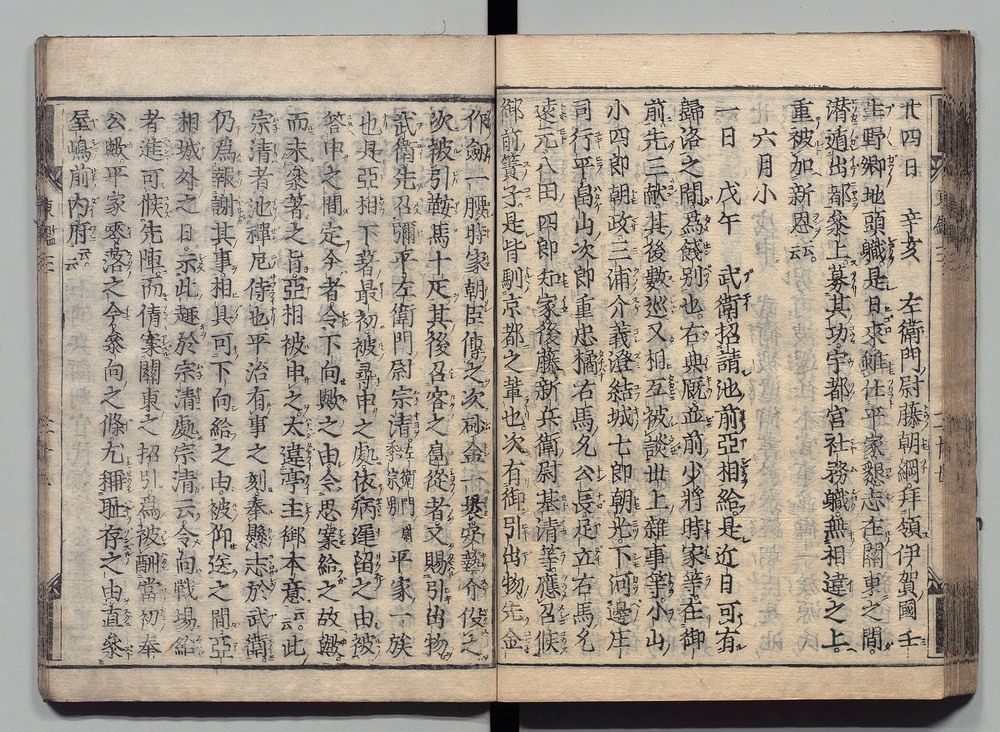 廿四日　辛亥　左衛門尉藤朝綱拜領伊賀國壬
生野郷地頭職是日來雖仕平家懇志在關東之間
潜遁出都參上募其功宇都宮社務職無相違之上
重被加新恩云云
六月小
一日　戊午　武衛招請池前亞相給是近日可有
歸洛之間爲餞別也右典厩並前少將時家等在御
前先三獻其後數巡又相互被談世上雜事等小山
小四郎朝政三浦介義澄結城七郎朝光下河邊庄
司行平畠山次郎重忠橘右馬允公長足立右馬允
遠元八田四郎知家後藤新兵衛尉基清等應召候
御前簀子是皆馴京都之輩也次有御引出物先金
作劔一腰時家朝臣傳之次砂金一裹安藝介役之
次被引鞍馬十疋其後召客之扈從者又賜引出物
武衛先召彌平左衛門尉宗清左衛門尉季宗男平家一族
也是亞相下著最初被尋申之處依病遲留之由被
答申之間定今者令下向歟之由令思案給之故歟
而未參著之旨亞相被申之太違亭主御本意云云此
宗清者池禪尼侍也平治有事之刻奉懸志於武衛
仍爲報謝其事相具可下向給之由被仰送之間亞
相城外之日示此趣於宗清處宗清云令向戰場給
者進可候先陣而倩案關東之招引爲被酬當初奉
公歟平家零落之今參向之條尤稱耻存之由直參
屋嶋前内府云云
東鑑三